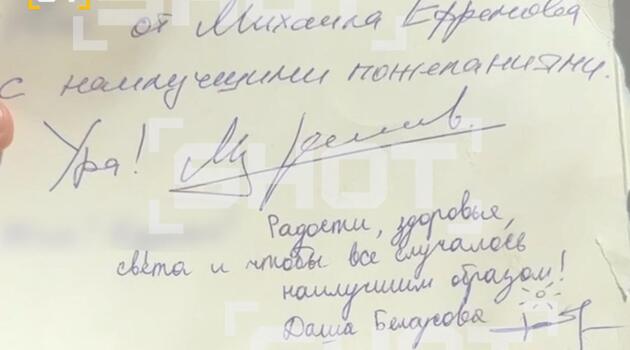 от Михаила Ефремова
с наилучшими пожеланиями.
Ура!
SHOT
Радости, здоровья,
света и чтобы все случалось
наилучшим образом!
Даша Белоусова